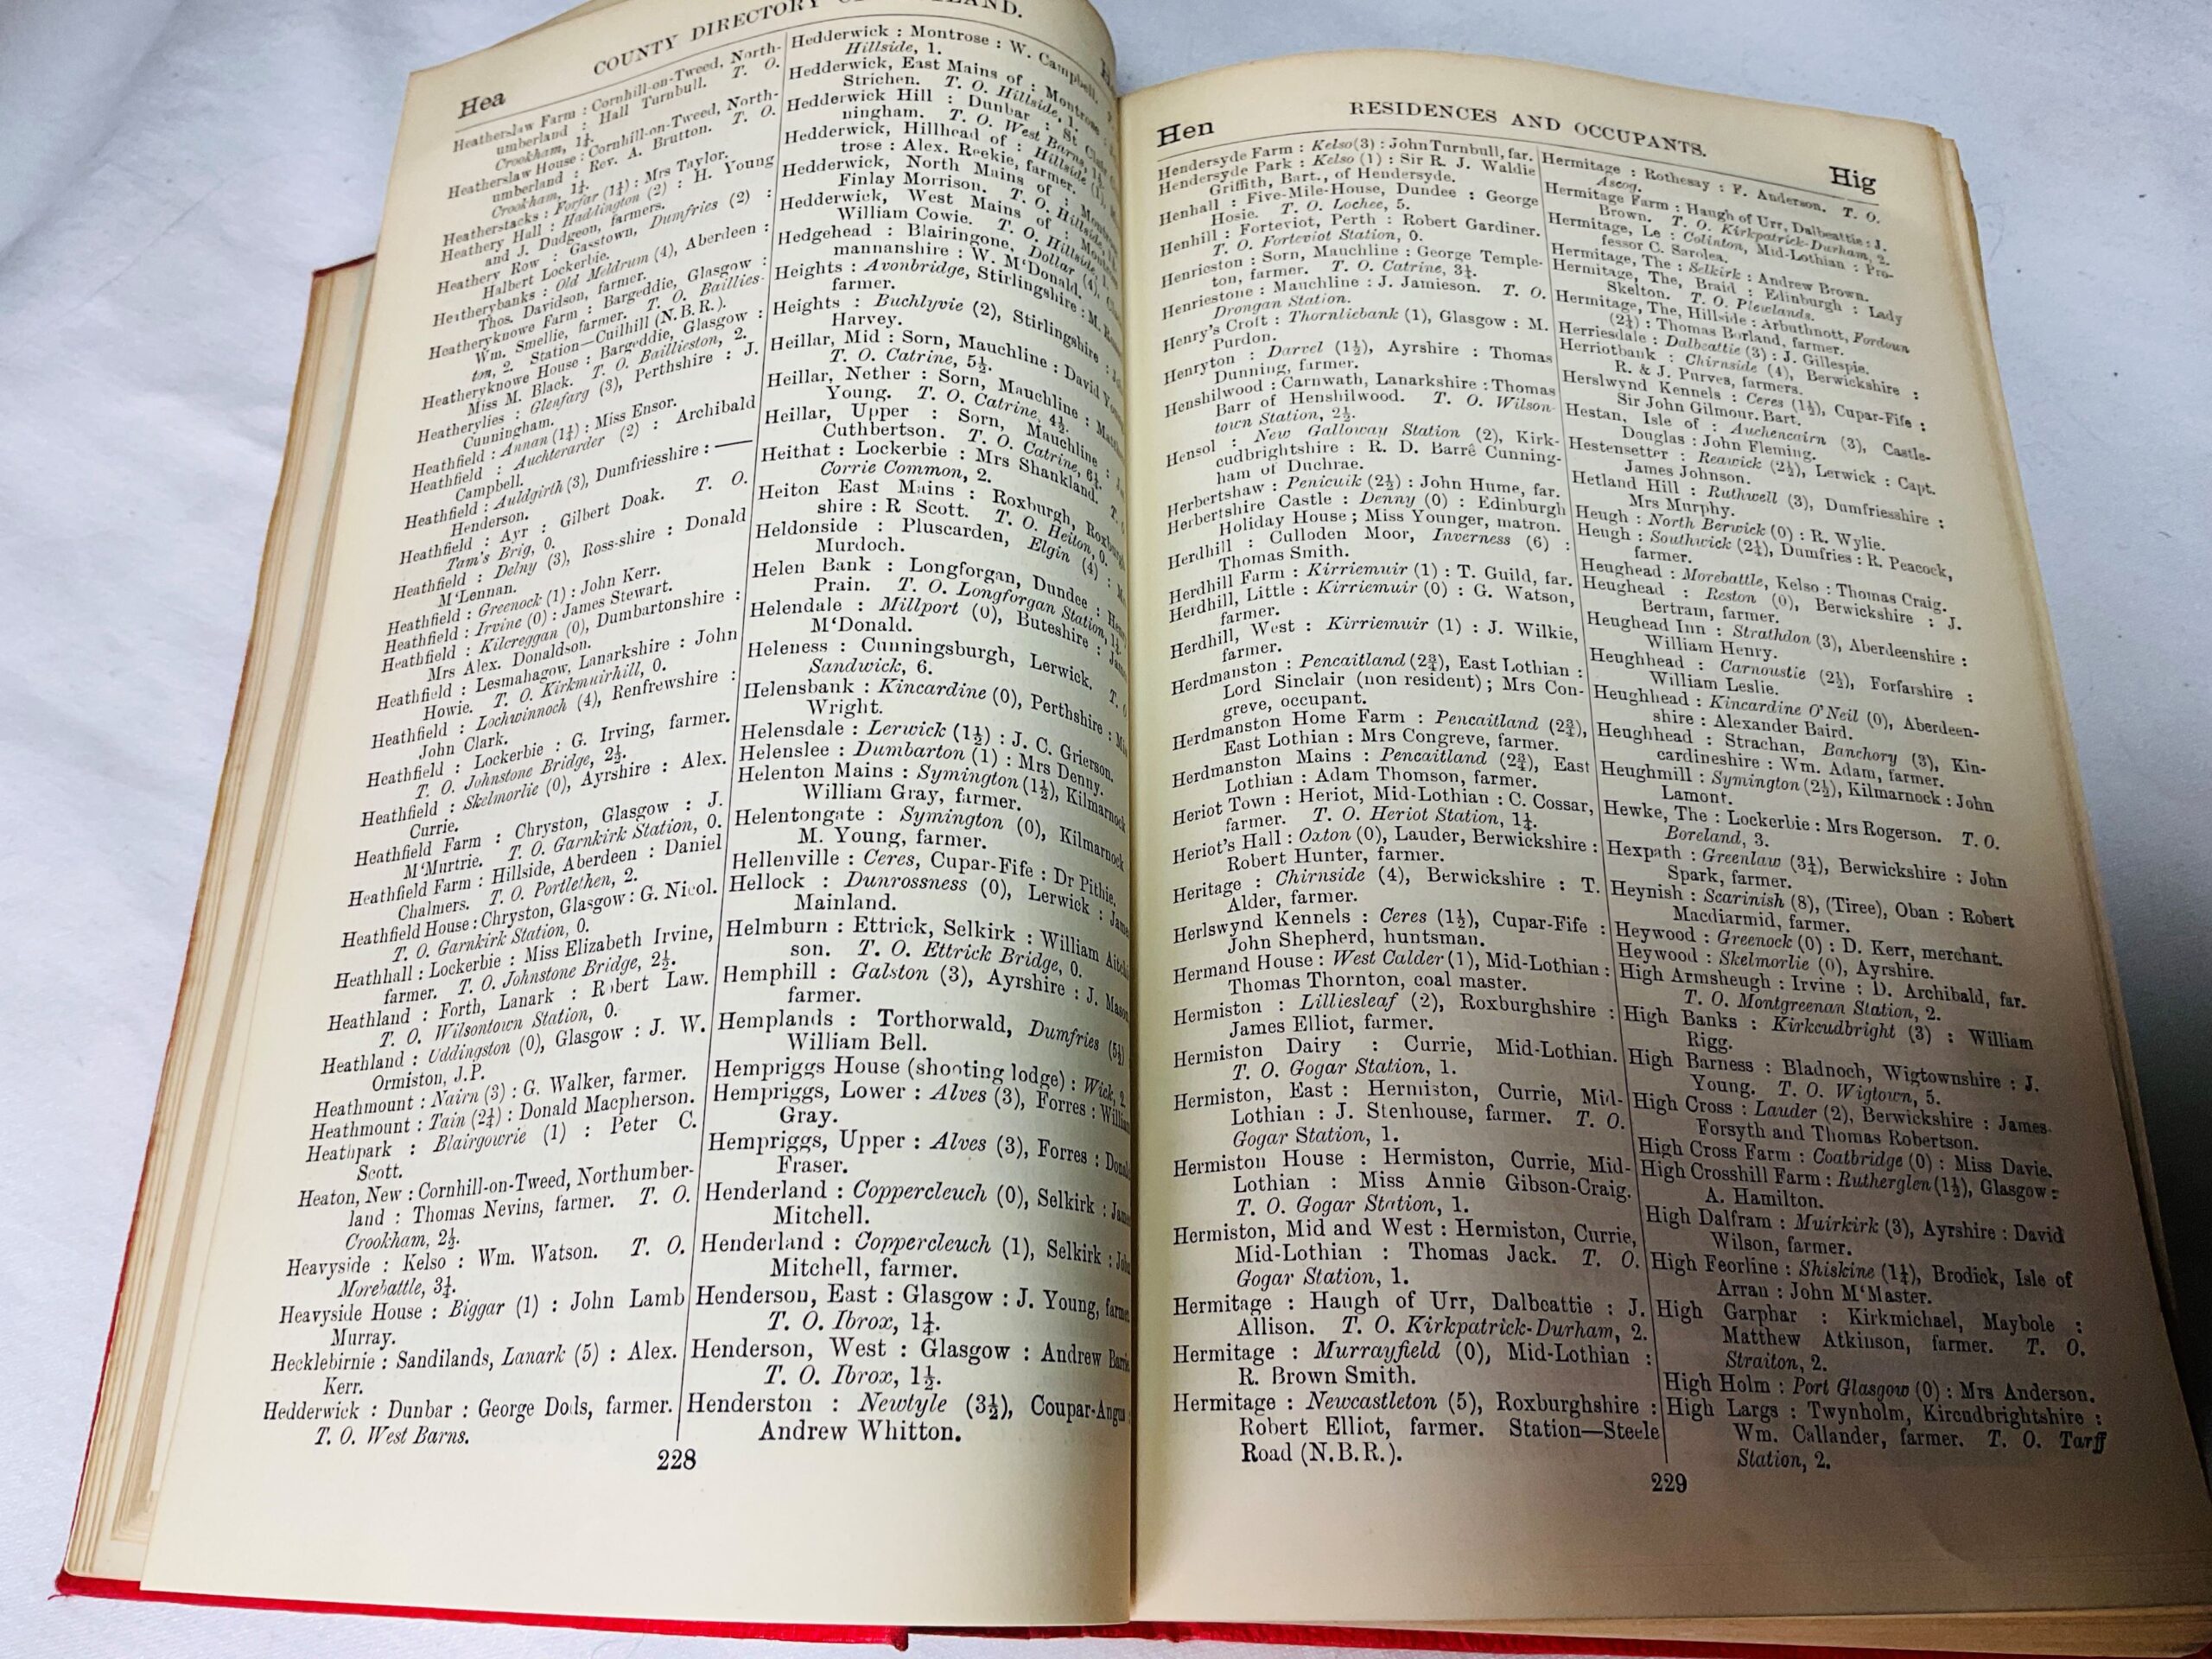 COUNTY DIRECTORY
Hea
Heatherslaw Farm : Cornhill-on-Tweed, North-
umberland : Hall Turnbull. T. O.
Crookham, 1½.
Heatherslaw House : Cornhill-on-Tweed, North-
umberland : Rev. A. Brutton. T. O.
Crookham, 1½.
Heatherstacks : Forfar (1½) : Mrs Taylor.
Heathery Hall : Haddington (2) : H. Young
and J. Dudgeon, farmers.
Heathery Row : Gasstown, Dumfries (2) :
Halbert Lockerbie.
Heatherybanks : Old Meldrum (4), Aberdeen :
Thos. Davidson, farmer.
Heatheryknowe Farm : Bargeddie, Glasgow :
Wm. Smellie, farmer. T. O. Baillies-
ton, 2. Station—Cuilhill (N.B.R.).
Heatheryknowe House : Bargeddie, Glasgow :
Miss M. Black. T. O. Baillieston, 2.
Heatherylies : Glenfarg (3), Perthshire : J.
Cunningham.
Heathfield : Annan (1¼) : Miss Ensor.
Heathfield : Auchterarder (2) : Archibald
Campbell.
Heathfield : Auldgirth (3), Dumfriesshire : ——
Henderson.
Heathfield : Ayr : Gilbert Doak. T. O.
Tam's Brig, 0.
Heathfield : Delny (3), Ross-shire : Donald
M'Lennan.
Heathfield : Greenock (1) : John Kerr.
Heathfield : Irvine (0) : James Stewart.
Heathfield : Kilcreggan (0), Dumbartonshire :
Mrs Alex. Donaldson.
Heathfield : Lesmahagow, Lanarkshire : John
Howie. T. O. Kirkmuirhill, 0.
Heathfield : Lochwinnoch (4), Renfrewshire :
John Clark.
Heathfield : Lockerbie : G. Irving, farmer.
T. O. Johnstone Bridge, 2½.
Heathfield : Skelmorlie (0), Ayrshire : Alex.
Currie.
Heathfield Farm : Chryston, Glasgow : J.
M'Murtrie. T. O. Garnkirk Station, 0.
Heathfield Farm : Hillside, Aberdeen : Daniel
Chalmers. T. O. Portlethen, 2.
Heathfield House : Chryston, Glasgow : G. Nicol.
T. O. Garnkirk Station, 0.
Heathhall : Lockerbie : Miss Elizabeth Irvine,
farmer. T. O. Johnstone Bridge, 2½.
Heathland : Forth, Lanark : Robert Law.
T. O. Wilsontown Station, 0.
Heathland : Uddingston (0), Glasgow : J. W.
Ormiston, J.P.
Heathmount : Nairn (3) : G. Walker, farmer.
Heathmount : Tain (2¼) : Donald Macpherson.
Heathpark : Blairgowrie (1) : Peter C.
Scott.
Heaton, New : Cornhill-on-Tweed, Northumber-
land : Thomas Nevins, farmer. T. O.
Crookham, 2½.
Heavyside : Kelso : Wm. Watson. T. O.
Morebattle, 3¼.
Heavyside House : Biggar (1) : John Lamb
Murray.
Hecklebirnie : Sandilands, Lanark (5) : Alex.
Kerr.
Hedderwick : Dunbar : George Dods, farmer.
T. O. West Barns.
Hedderwick : Montrose : W. Campbell.
Hillside, 1.
Hedderwick, East Mains of : Montrose :
Strichen. T. O. Hillside, 1.
Hedderwick Hill : Dunbar : St Clair
ningham. T. O. West Barns,
Hedderwick, Hillhead of : Hillside
trose : Alex. Reekie, farmer.
Hedderwick, North Mains of : Montrose
Finlay Morrison. T. O. Hillside,
Hedderwick, West Mains of
William Cowie. T. O. Hillside,
Hedgehead : Blairingone, Dollar (4),
mannanshire : W. M'Donald.
Heights : Avonbridge, Stirlingshire : M.
farmer.
Heights : Buchlyvie (2), Stirlingshire :
Harvey.
Heillar, Mid : Sorn, Mauchline : David
T. O. Catrine, 5½.
Heillar, Nether : Sorn, Mauchline :
Young. T. O. Catrine, 4½.
Heillar, Upper : Sorn, Mauchline :
Cuthbertson. T. O. Catrine, 6½.
Heithat : Lockerbie : Mrs Shankland.
Corrie Common, 2.
Heiton East Mains : Roxburgh,
shire : R Scott. T. O. Heiton, 0.
Heldonside : Pluscarden, Elgin (4) :
Murdoch.
Helen Bank : Longforgan, Dundee : Henry
Prain. T. O. Longforgan Station, 1½.
Helendale : Millport (0), Buteshire :
M'Donald.
Heleness : Cunningsburgh, Lerwick. T.
Sandwick, 6.
Helensbank : Kincardine (0), Perthshire :
Wright.
Helensdale : Lerwick (1½) : J. C. Grierson.
Helenslee : Dumbarton (1) : Mrs Denny.
Helenton Mains : Symington (1½), Kilmarnock
William Gray, farmer.
Helentongate : Symington (0), Kilmarnock
M. Young, farmer.
Hellenville : Ceres, Cupar-Fife : Dr Pithie.
Hellock : Dunrossness (0), Lerwick :
Mainland.
Helmburn : Ettrick, Selkirk : William
son. T. O. Ettrick Bridge, 0.
Hemphill : Galston (3), Ayrshire : J. Mason
farmer.
Hemplands : Torthorwald, Dumfries
William Bell.
Hempriggs House (shooting lodge) : Wick, 2.
Hempriggs, Lower : Alves (3), Forres : William
Gray.
Hempriggs, Upper : Alves (3), Forres :
Fraser.
Henderland : Coppercleuch (0), Selkirk :
Mitchell.
Henderland : Coppercleuch (1), Selkirk :
Mitchell, farmer.
Henderson, East : Glasgow : J. Young,
T. O. Ibrox, 1¼.
Henderson, West : Glasgow : Andrew
T. O. Ibrox, 1½.
Henderston : Newtyle (3½), Coupar-Angus
Andrew Whitton.
228
Hen RESIDENCES AND OCCUPANTS. Hig
Hendersyde Farm : Kelso (3) : John Turnbull, far.
Hendersyde Park : Kelso (1) : Sir R. J. Waldie
Griffith, Bart., of Hendersyde.
Henhall : Five-Mile-House, Dundee : George
Hosie. T. O. Lochee, 5.
Henhill : Forteviot, Perth : Robert Gardiner.
T. O. Forteviot Station, 0.
Henrieston : Sorn, Mauchline : George Temple-
ton, farmer. T. O. Catrine, 3¼.
Henriestone : Mauchline : J. Jamieson. T. O.
Drongan Station.
Henry's Croft : Thornliebank (1), Glasgow : M.
Purdon.
Henryton : Darvel (1½), Ayrshire : Thomas
Dunning, farmer.
Henshilwood : Carnwath, Lanarkshire : Thomas
Barr of Henshilwood. T. O. Wilson-
town Station, 2½.
Hensol : New Galloway Station (2), Kirk-
cudbrightshire : R. D. Barrê Cunning-
ham of Duchrae.
Herbertshaw : Penicuik (2½) : John Hume, far.
Herbertshire Castle : Denny (0) : Edinburgh
Holiday House ; Miss Younger, matron.
Herdhill : Culloden Moor, Inverness (6) :
Thomas Smith.
Herdhill Farm : Kirriemuir (1) : T. Guild, far.
Herdhill, Little : Kirriemuir (0) : G. Watson,
farmer.
Herdhill, West : Kirriemuir (1) : J. Wilkie,
farmer.
Herdmanston : Pencaitland (2¾), East Lothian :
Lord Sinclair (non resident) ; Mrs Con-
greve, occupant.
Herdmanston Home Farm : Pencaitland (2¾),
East Lothian : Mrs Congreve, farmer.
Herdmanston Mains : Pencaitland (2¾), East
Lothian : Adam Thomson, farmer.
Heriot Town : Heriot, Mid-Lothian : C. Cossar,
farmer. T. O. Heriot Station, 1¼.
Heriot's Hall : Oxton (0), Lauder, Berwickshire :
Robert Hunter, farmer.
Heritage : Chirnside (4), Berwickshire : T.
Alder, farmer.
Herlswynd Kennels : Ceres (1½), Cupar-Fife :
John Shepherd, huntsman.
Hermand House : West Calder (1), Mid-Lothian :
Thomas Thornton, coal master.
Hermiston : Lilliesleaf (2), Roxburghshire :
James Elliot, farmer.
Hermiston Dairy : Currie, Mid-Lothian.
T. O. Gogar Station, 1.
Hermiston, East : Hermiston, Currie, Mid-
Lothian : J. Stenhouse, farmer. T. O.
Gogar Station, 1.
Hermiston House : Hermiston, Currie, Mid-
Lothian : Miss Annie Gibson-Craig.
T. O. Gogar Station, 1.
Hermiston, Mid and West : Hermiston, Currie,
Mid-Lothian : Thomas Jack. T. O.
Gogar Station, 1.
Hermitage : Haugh of Urr, Dalbeattie : J.
Allison. T. O. Kirkpatrick-Durham, 2.
Hermitage : Murrayfield (0), Mid-Lothian :
R. Brown Smith.
Hermitage : Newcastleton (5), Roxburghshire :
Robert Elliot, farmer. Station—Steele
Road (N.B.R.).
Hermitage : Rothesay : F. Anderson. T. O.
Ascog.
Hermitage Farm : Haugh of Urr, Dalbeattie : J.
Brown. T. O. Kirkpatrick-Durham, 2.
Hermitage, Le : Colinton, Mid-Lothian : Pro-
fessor C. Sarolea.
Hermitage, The : Selkirk : Andrew Brown.
Hermitage, The, Braid : Edinburgh : Lady
Skelton. T. O. Plewlands.
Hermitage, The, Hillside : Arbuthnott, Fordoun
(2½) : Thomas Borland, farmer.
Herriesdale : Dalbeattie (3) : J. Gillespie.
Herriotbank : Chirnside (4), Berwickshire :
R. & J. Purves, farmers.
Herslwynd Kennels : Ceres (1½), Cupar-Fife :
Sir John Gilmour, Bart.
Hestan, Isle of : Auchencairn (3), Castle-
Douglas : John Fleming.
Hestensetter : Reawick (2½), Lerwick : Capt.
James Johnson.
Hetland Hill : Ruthwell (3), Dumfriesshire :
Mrs Murphy.
Heugh : North Berwick (0) : R. Wylie.
Heugh : Southwick (2¼), Dumfries : R. Peacock,
farmer.
Heughead : Morebattle, Kelso : Thomas Craig.
Heughead : Reston (0), Berwickshire : J.
Bertram, farmer.
Heughead Inn : Strathdon (3), Aberdeenshire :
William Henry.
Heughhead : Carnoustie (2½), Forfarshire :
William Leslie.
Heughhead : Kincardine O'Neil (0), Aberdeen-
shire : Alexander Baird.
Heughhead : Strachan, Banchory (3), Kin-
cardineshire : Wm. Adam, farmer.
Heughmill : Symington (2½), Kilmarnock : John
Lamont.
Hewke, The : Lockerbie : Mrs Rogerson. T. O.
Boreland, 3.
Hexpath : Greenlaw (3¼), Berwickshire : John
Spark, farmer.
Heynish : Scarinish (8), (Tiree), Oban : Robert
Macdiarmid, farmer.
Heywood : Greenock (0) : D. Kerr, merchant.
Heywood : Skelmorlie (0), Ayrshire.
High Armsheugh : Irvine : D. Archibald, far.
T. O. Montgreenan Station, 2.
High Banks : Kirkcudbright (3) : William
Rigg.
High Barness : Bladnoch, Wigtownshire : J.
Young. T. O. Wigtown, 5.
High Cross : Lauder (2), Berwickshire : James
Forsyth and Thomas Robertson.
High Cross Farm : Coatbridge (0) : Miss Davie.
High Crosshill Farm : Rutherglen (1½), Glasgow :
A. Hamilton.
High Dalfram : Muirkirk (3), Ayrshire : David
Wilson, farmer.
High Feorline : Shiskine (1¼), Brodick, Isle of
Arran : John M'Master.
High Garphar : Kirkmichael, Maybole :
Matthew Atkinson, farmer. T. O.
Straiton, 2.
High Holm : Port Glasgow (0) : Mrs Anderson.
High Largs : Twynholm, Kircudbrightshire :
Wm. Callander, farmer. T. O. Tarff
Station, 2.
229